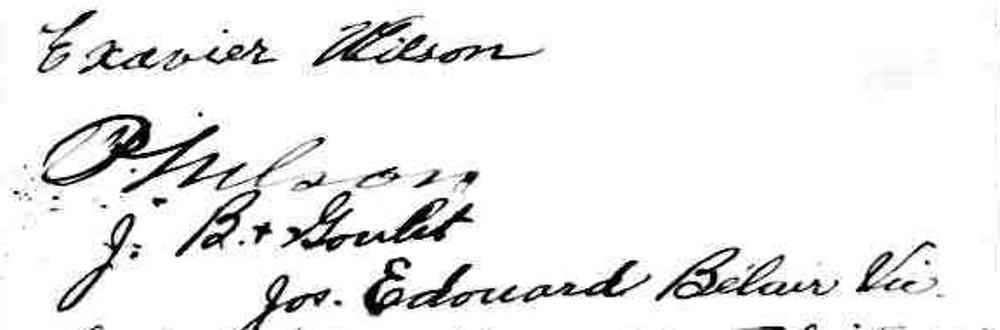 Exavier Wilson
P. Wilson
J. B. + Goulet
Jos. Edouard Bélair Vic.